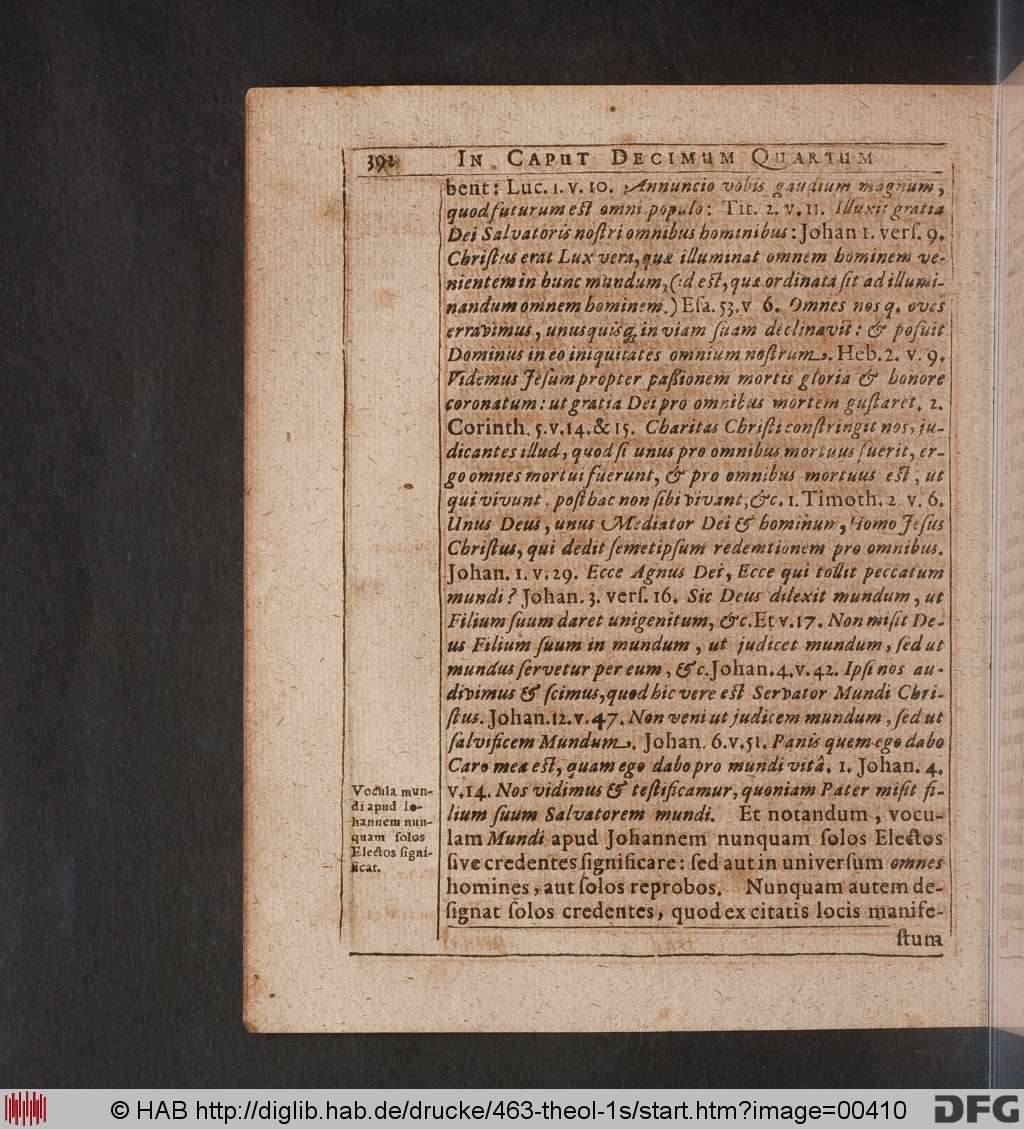 392 IN CAPUT DECIMUM QUARTUM
bent: Luc. 1. v. 10. Annuncio vobis gaudium magnum,
quod futurum est omni populo: Tit. 2. v. 11. Illuxit gratia
Dei Salvatoris nostri omnibus hominibus: Johan 1. vers. 9.
Christus erat Lux vera, quæ illuminat omnem hominem ve-
nientem in hunc mundum, (id est, quæ ordinata sit ad illumi-
nandum omnem hominem.) Esa. 53. v 6. Omnes nos q. oves
erravimus, unusquisq; in viam suam declinavit: & posuit
Dominus in eo iniquitates omnium nostrum. Heb. 2. v. 9.
Videmus Jesum propter passionem mortis gloria & honore
coronatum: ut gratia Dei pro omnibus mortem gustaret. 2.
Corinth. 5. v. 14. & 15. Charitas Christi constringit nos, ju-
dicantes illud, quod si unus pro omnibus mortuus fuerit, er-
go omnes mortui fuerunt, & pro omnibus mortuus est, ut
qui vivunt, posthac non sibi vivant, &c. 1. Timoth. 2. v. 6.
Unus Deus, unus Mediator Dei & hominum, Homo Jesus
Christus, qui dedit semetipsum redemtionem pro omnibus.
Johan. 1. v. 29. Ecce Agnus Dei, Ecce qui tollit peccatum
mundi? Johan. 3. vers. 16. Sic Deus dilexit mundum, ut
Filium suum daret unigenitum, &c. Et v. 17. Non misit De-
us Filium suum in mundum, ut judicet mundum, sed ut
mundus servetur per eum, &c. Johan. 4. v. 42. Ipsi nos au-
divimus & scimus, quod hic vere est Servator Mundi Chri-
stus. Johan. 12. v. 47. Non veni ut judicem mundum, sed ut
salvificem Mundum. Johan. 6. v. 51. Panis quem ego dabo
Caro mea est, quam ego dabo pro mundi vitâ. 1. Johan. 4.
v. 14. Nos vidimus & testificamur, quoniam Pater misit fi-
lium suum Salvatorem mundi. Et notandum, vocu-
lam Mundi apud Johannem nunquam solos Electos
sive credentes significare: sed aut in universum omnes
homines, aut solos reprobos. Nunquam autem de-
signat solos credentes, quod ex citatis locis manife-
stum
Vocula mun-
di apud Io-
hannem nun-
quam solos
Electos signi-
ficat.
© HAB http://diglib.hab.de/drucke/463-theol-1s/start.htm?image=00410
DFG